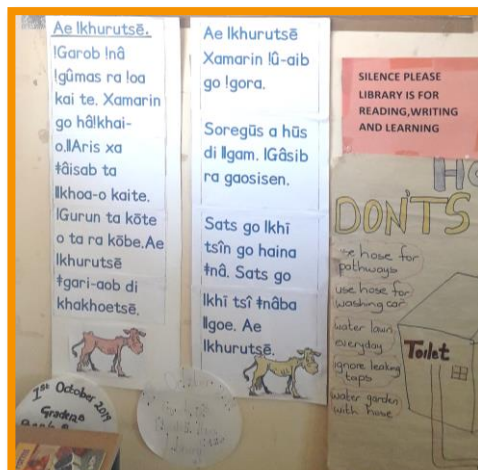 Ae ǀkhurutsē.
ǃGarob ǃnâ
ǃgûmas ra ǃoa
kai te. Xamarin
go hâǃkhai-
o.ǁAris xa
ǂâisab ta
ǁkhoa-o kaite.
ǀGurun ta kōte
o ta ra kōbe.Ae
ǀkhurutsē
ǂgari-aob di
khakhoetsē.
Ae ǀkhurutsē
Xamarin ǃû-aib
go ǃgora.
Soregūs a hūs
di ǁgam. ǀGâsib
ra gaosisen.
Sats go ǀkhī
tsîn go haina
ǂnâ. Sats go
ǀkhī tsî ǂnâba
ǁgoe. Ae
ǀkhurutsē.
SILENCE PLEASE
LIBRARY IS FOR
READING,WRITING
AND LEARNING
HO
DON'TS
use hose for
pathways
use hose for
washing car
water lawn
everyday
ignore leaking
taps
water garden
with hose
Toilet
1st October 2019